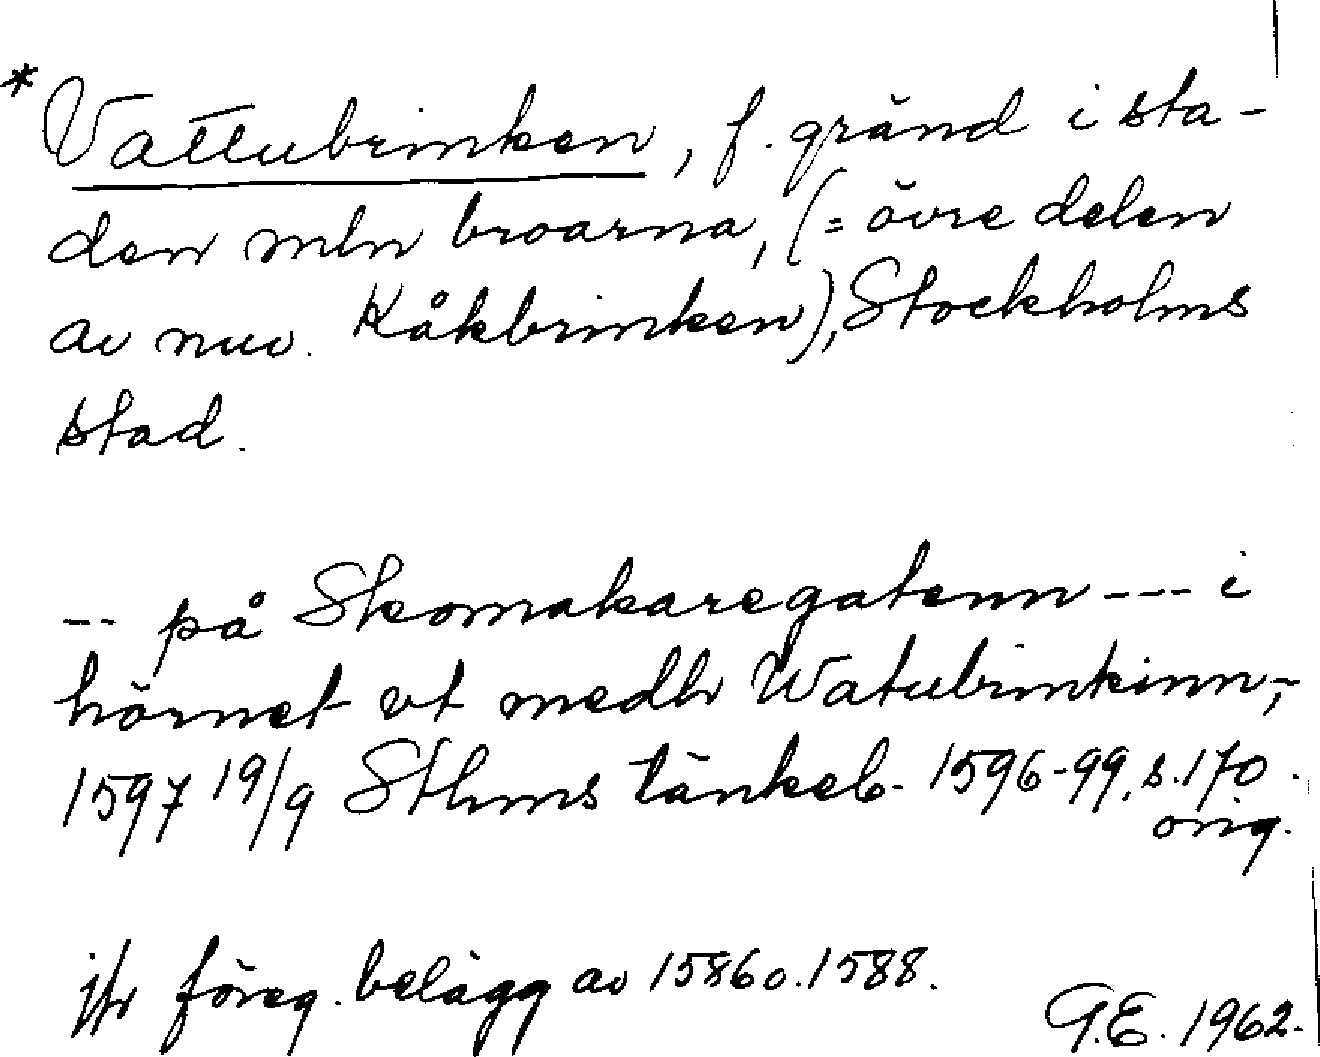 * Vattubrinken, f. gränd i sta-
den mln broarna, (= övre delen
av nuv. Kåkbrinken), Stockholms
stad.
-- på Skomakaregatenn --- i
hörnet vt medh Watubrinkinn,-
1597 19/9 Sthms tänkeb. 1596-99, s. 170.
orig.
jfr föreg. belägg av 1586 o. 1588.
G.E. 1962.